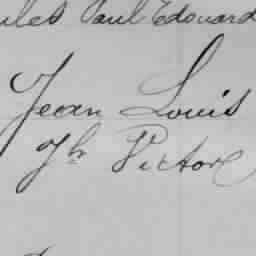 ules Paul Edouard
Jean Louis
Jh Victor